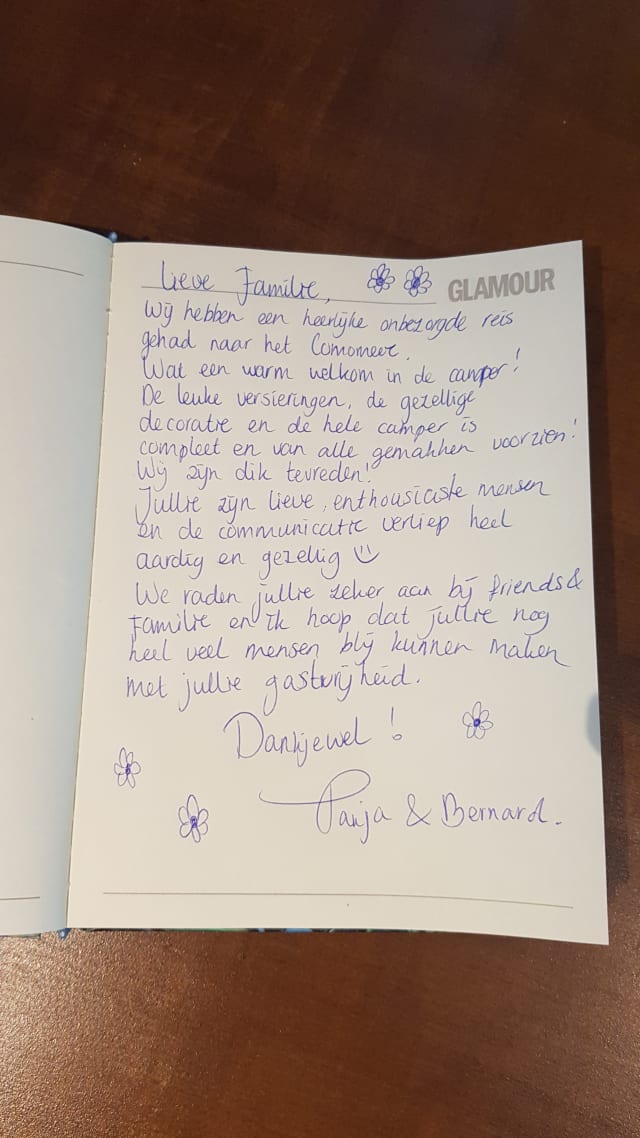 Lieve Familie,
GLAMOUR
Wij hebben een heerlijke onbezorgde reis
gehad naar het Comomeer.
Wat een warm welkom in de camper!
De leuke versieringen, de gezellige
decoratie en de hele camper is
compleet en van alle gemakken voorzien!
Wij zijn dik tevreden!
Jullie zijn lieve, enthousiaste mensen
en de communicatie verliep heel
aardig en gezellig
We raden jullie zeker aan bij friends &
Familie en ik hoop dat jullie nog
heel veel mensen blij kunnen maken
met jullie gastvrijheid.
Dankjewel!
Tanja & Bernard.